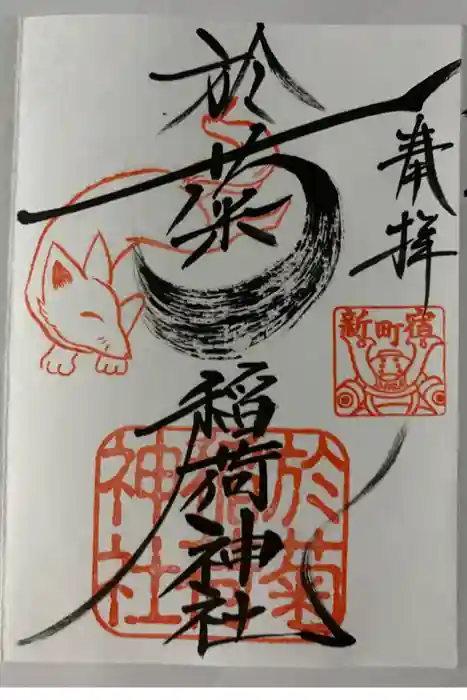 奉拝
新町宿
於菊稲荷神社
於菊
稲荷
神社